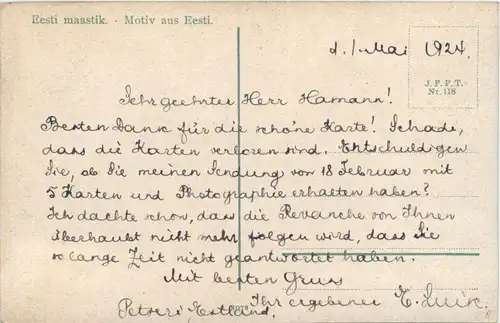 Eesti maastik. - Motiv aus Eesti.
d. 1 Mai 1924.
J. P. P. T.
Nr. 118
Sehr geehrter Herr Hamann!
Besten Dank für die schöne Karte! Schade,
dass die Karten verloren sind. Entschuldigen
Sie, ob Sie meinen Sendung von 18 Februar mit
5 Karten und Photographie erhaeten haben?
Ich dachte schon, dass die Revanche von Ihnen
überhaubt nicht mehr folgen wird, dass Sie
so lange Zeit nicht geantwortet haben.
Mit besten Gruss
Ihr ergebener E. Luik.
Petseri Estland.